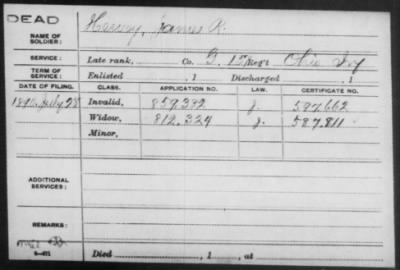 DEAD
NAME OF SOLDIER: Harvey, James R.
SERVICE: Late rank, Co. G. 15 Reg't Ohio Inf
TERM OF SERVICE: Enlisted , 1 Discharged , 1
DATE OF FILING. CLASS. APPLICATION NO. LAW. CERTIFICATE NO.
July 28 Invalid, 859.392 J. 587.662
Widow, 812.324 J. 587.811
Minor,
ADDITIONAL SERVICES:
REMARKS:
Died , 1 , at